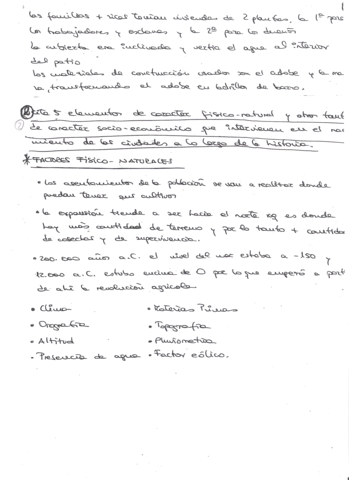 las familias + ricas tenían viviendas de 2 plantas, la 1ª para
los trabajadores y esclavos y la 2ª para los dueños
la cubierta era inclinada y vertía el agua al interior
del patio
los materiales de construcción usados son el adobe y la
transformando el adobe en ladrillo de barro.
Cita 5 elementos de carácter físico-natural y otros tant
de carácter socio-económico que intervienen en el naci
miento de las ciudades a lo largo de la historia.
* FACTORES FÍSICO-NATURALES
• Los asentamientos de la población se van a realizar donde
puedan tener sus cultivos
• la expansión tiende a ser hacia el norte xq es donde
hay más cantidad de terreno y por lo tanto + cantidad
de cosechas y de supervivencia.
• 200.000 años a.C. el nivel del mar estaba a -150 y
12.000 a.C. estaba encima de 0 por lo que empezó a part
de ahí la revolución agrícola
• Clima • Materias Primas
• Orografía • Topografía
• Altitud • Pluviometría
• Presencia de agua • Factor eólico.